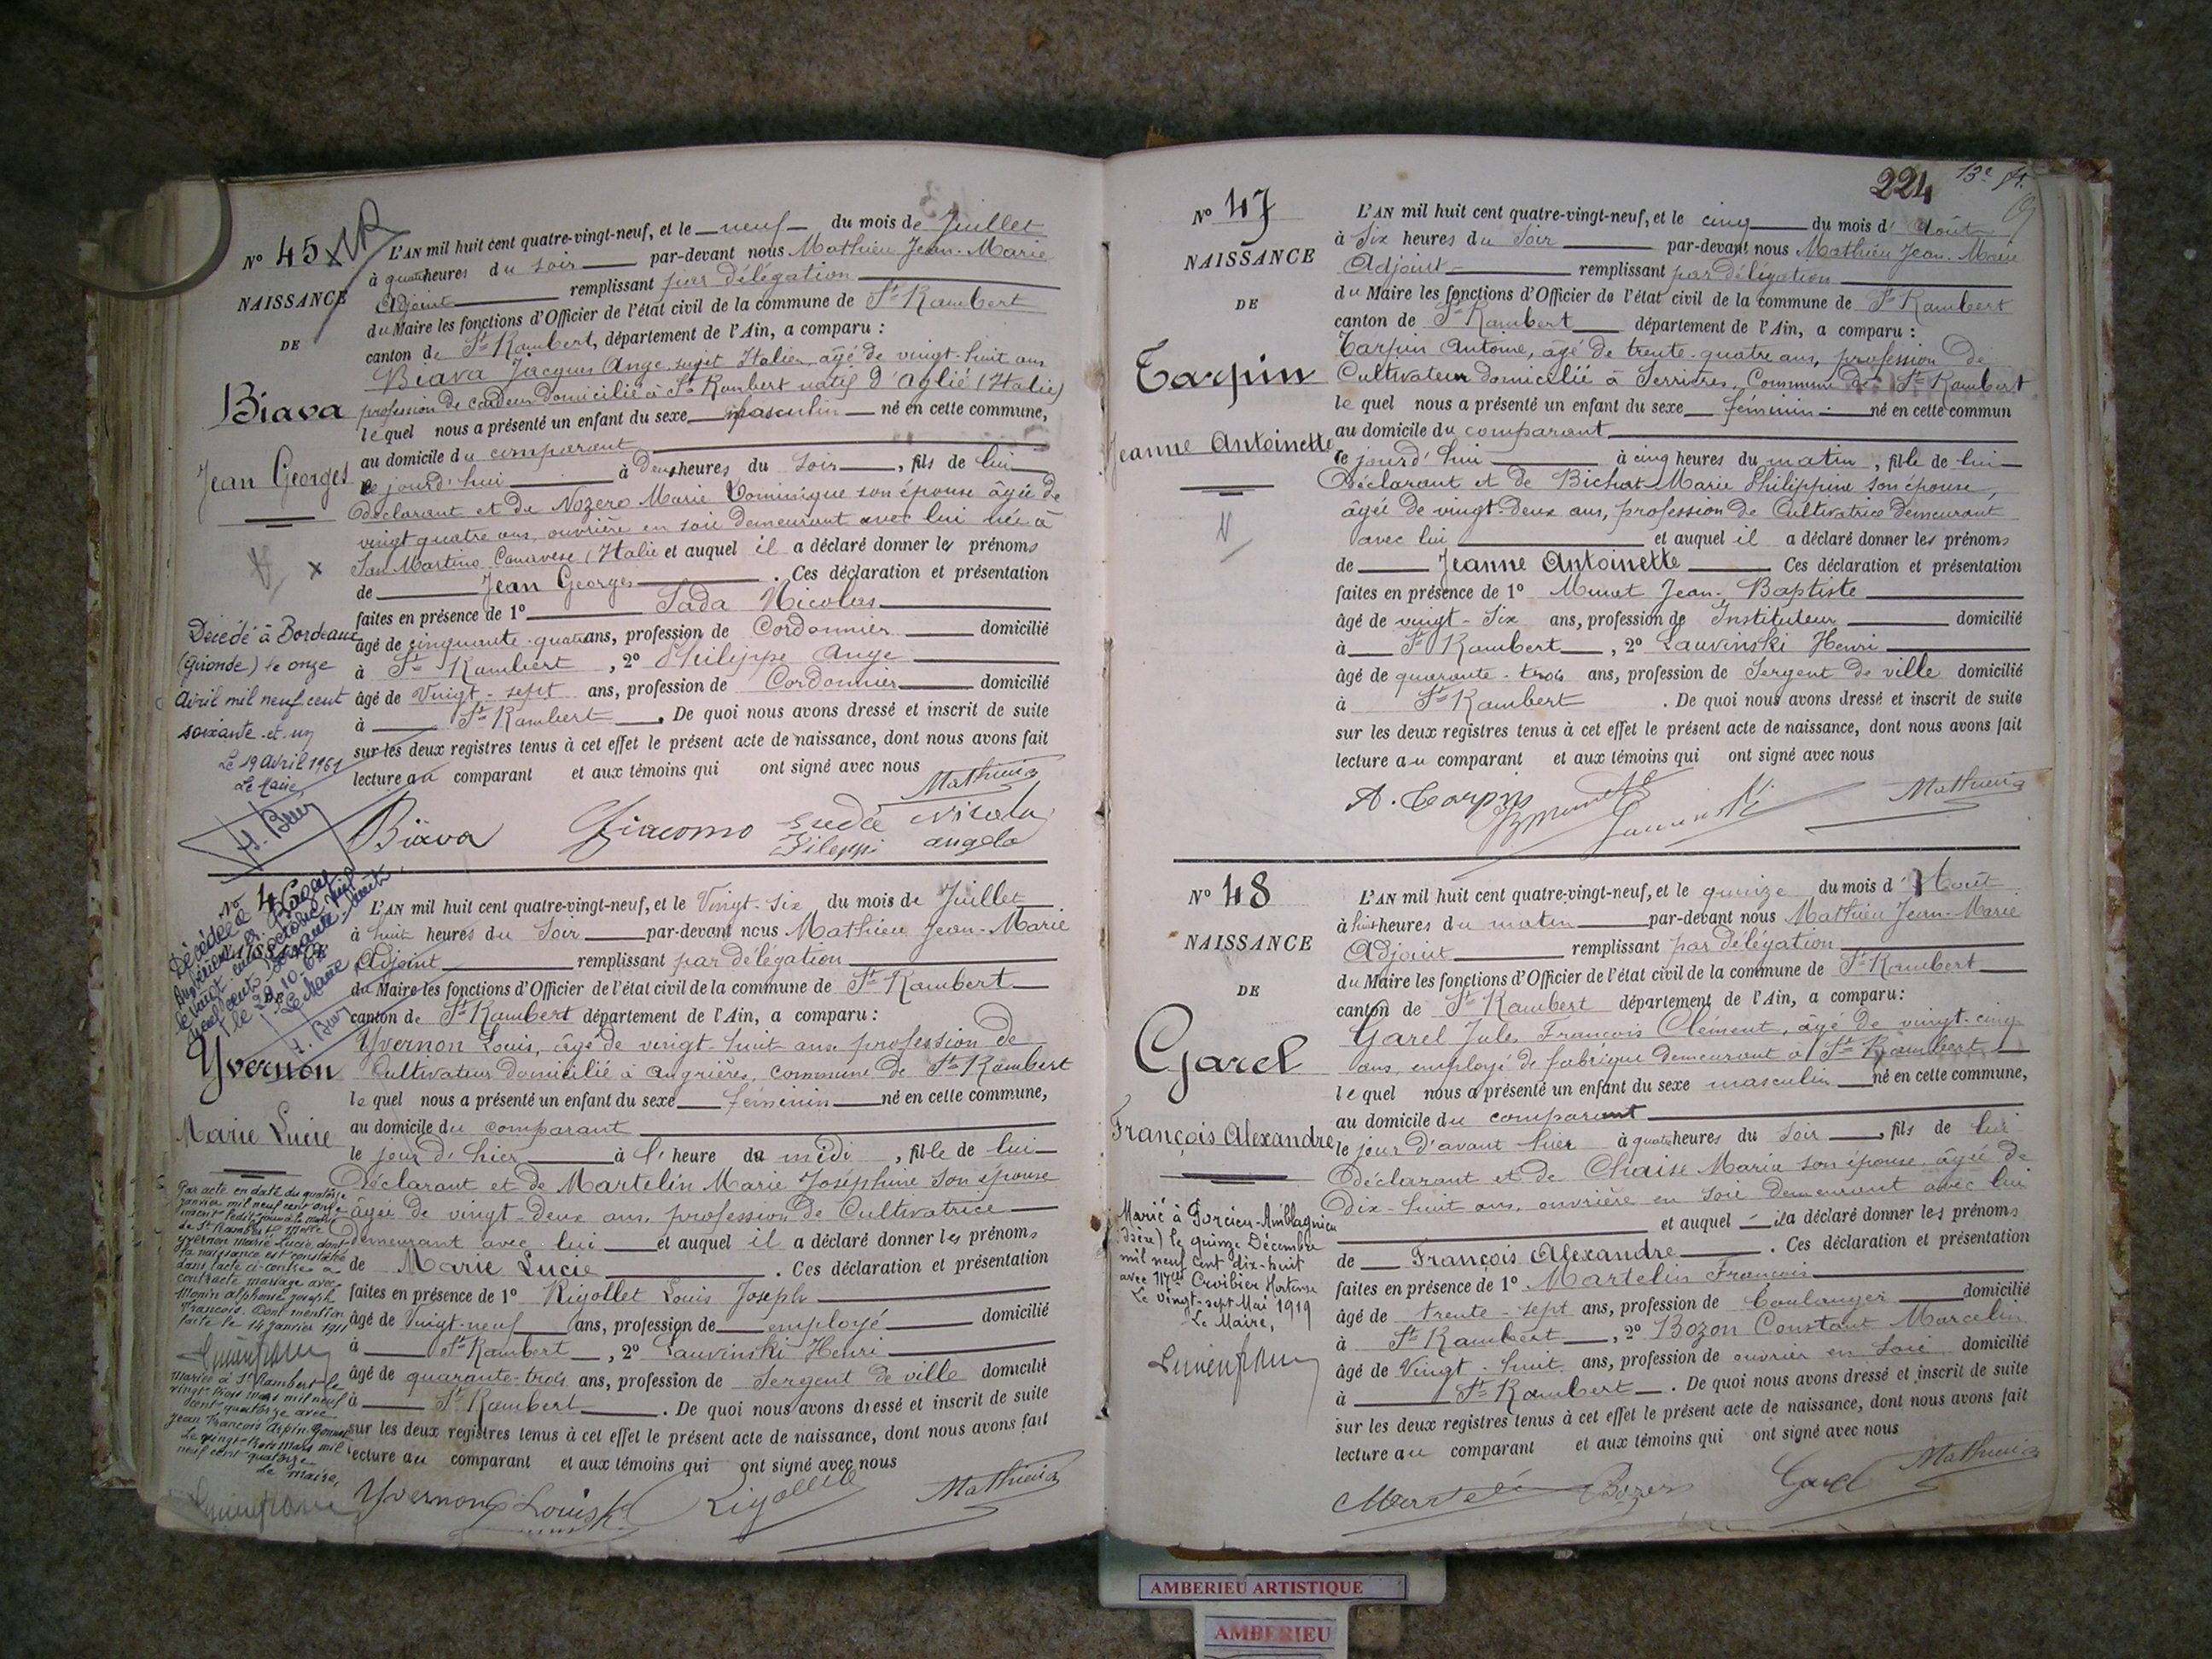 N° 45
NAISSANCE
DE
Biava
Jean Georges
Décédé à Bordeaux
(Gironde) le onze
avril mil neuf cent
soixante et un
Le 19 avril 1961
Le Maire
L'AN mil huit cent quatre-vingt-neuf, et le neuf du mois de Juillet
à quatre heures du soir par-devant nous Mathieu Jean-Marie
Adjoint remplissant par délégation
du Maire les fonctions d'Officier de l'état civil de la commune de St Rambert
canton de St Rambert, département de l'Ain, a comparu :
Biava Jacques Ange sujet Italien, âgé de vingt-huit ans
profession de cardeur domicilié à St Rambert natif d'Aglié (Italie)
lequel nous a présenté un enfant du sexe masculin né en cette commune,
au domicile du comparant
ce jourd'hui à deux heures du soir, fils de lui
déclarant et de Nozero Marie Dominique son épouse âgée de
vingt quatre ans, ouvrière en soie demeurant avec lui née à
San Martino Canavese (Italie et auquel il a déclaré donner les prénoms
de Jean Georges. Ces déclaration et présentation
faites en présence de 1° Sada Nicolas
âgé de cinquante-quatre ans, profession de Cordonnier domicilié
à St Rambert, 2° Philippe Ange
âgé de Vingt-sept ans, profession de Cordonnier domicilié
à St Rambert. De quoi nous avons dressé et inscrit de suite
sur les deux registres tenus à cet effet le présent acte de naissance, dont nous avons fait
lecture au comparant et aux témoins qui ont signé avec nous
Mathieu
Biava Giacomo Nicola
Fileppi angelo
N° 46
NAISSANCE
DE
Yvernon
Marie Lucie
Par acte en date du quatorze
janvier mil neuf cent onze
inscrit ledit jour à la mairie
de St Rambert, Melle
Yvernon Marie Lucie, dont
la naissance est constatée
dans l'acte ci-contre a
contracté mariage avec
Monin Alphonse Joseph
François. Dont mention
faite le 14 janvier 1911
Mariée à St Rambert le
vingt trois mars mil neuf
cent quatorze avec
Jean François Arpin
Le vingt-trois mars mil
neuf cent quatorze
Le maire,
L'AN mil huit cent quatre-vingt-neuf, et le Vingt-six du mois de Juillet
à huit heures du Soir par-devant nous Mathieu Jean-Marie
Adjoint remplissant par délégation
du Maire les fonctions d'Officier de l'état civil de la commune de St Rambert
canton de St Rambert département de l'Ain, a comparu :
Yvernon Louis, âgé de vingt-huit ans profession de
Cultivateur domicilié à Angrières, commune de St Rambert
lequel nous a présenté un enfant du sexe féminin né en cette commune,
au domicile du comparant
le jour d'hier à l'heure de midi, fille de lui
Déclarant et de Martelin Marie Joséphine son épouse
âgée de vingt-deux ans, profession de Cultivatrice
demeurant avec lui et auquel il a déclaré donner les prénoms
de Marie Lucie. Ces déclaration et présentation
faites en présence de 1° Rigollet Louis Joseph
âgé de Vingt-neuf ans, profession de employé domicilié
à St Rambert, 2° Lauvinski Henri
âgé de quarante-trois ans, profession de Sergent de ville domicilié
à St Rambert. De quoi nous avons dressé et inscrit de suite
sur les deux registres tenus à cet effet le présent acte de naissance, dont nous avons fait
lecture au comparant et aux témoins qui ont signé avec nous
Yvernon Louis Rigollet Mathieu
224
13e
N° 47
NAISSANCE
DE
Tarpin
Jeanne Antoinette
L'AN mil huit cent quatre-vingt-neuf, et le cinq du mois d'Août
à Six heures du Soir par-devant nous Mathieu Jean-Marie
Adjoint remplissant par délégation
du Maire les fonctions d'Officier de l'état civil de la commune de St Rambert
canton de St Rambert département de l'Ain, a comparu :
Tarpin Antoine, âgé de trente-quatre ans, profession de
Cultivateur domicilié à Serrières, Commune de St Rambert
lequel nous a présenté un enfant du sexe féminin né en cette commun
au domicile du comparant
ce jourd'hui à cinq heures du matin, fille de lui
Déclarant et de Bichat Marie Philippine son épouse,
âgée de vingt-deux ans, profession de Cultivatrice demeurant
avec lui et auquel il a déclaré donner les prénoms
de Jeanne Antoinette Ces déclaration et présentation
faites en présence de 1° Munet Jean-Baptiste
âgé de vingt-Six ans, profession de Instituteur domicilié
à St Rambert, 2° Lauvinski Henri
âgé de quarante-trois ans, profession de Sergent de ville domicilié
à St Rambert. De quoi nous avons dressé et inscrit de suite
sur les deux registres tenus à cet effet le présent acte de naissance, dont nous avons fait
lecture au comparant et aux témoins qui ont signé avec nous
A. Tarpin Mathieu
N° 48
NAISSANCE
DE
Garel
François Alexandre
Marié à Porcieu-Amblagnieu
(Isère) le quinze Décembre
mil neuf cent dix-huit
avec Melle Croibier Hortense
Le vingt-sept Mai 1919
Le Maire,
L'AN mil huit cent quatre-vingt-neuf, et le quinze du mois d'Août
à huit heures du matin par-devant nous Mathieu Jean-Marie
Adjoint remplissant par délégation
du Maire les fonctions d'Officier de l'état civil de la commune de St Rambert
canton de St Rambert département de l'Ain, a comparu :
Garel Jules François Clément, âgé de vingt-cinq
ans, employé de fabrique demeurant à St Rambert
lequel nous a présenté un enfant du sexe masculin né en cette commune,
au domicile du comparant
le jour d'avant hier à quatre heures du Soir, fils de lui
Déclarant et de Chaise Maria son épouse, âgée de
dix-huit ans, ouvrière en soie demeurant avec lui
et auquel il a déclaré donner les prénoms
de François Alexandre. Ces déclaration et présentation
faites en présence de 1° Martelin François
âgé de trente-sept ans, profession de boulanger domicilié
à St Rambert, 2° Bozon Constant Marcelin
âgé de Vingt-huit ans, profession de ouvrier en soie domicilié
à St Rambert. De quoi nous avons dressé et inscrit de suite
sur les deux registres tenus à cet effet le présent acte de naissance, dont nous avons fait
lecture au comparant et aux témoins qui ont signé avec nous
Bozon Garel Mathieu
AMBERIEU ARTISTIQUE
AMBERIEU